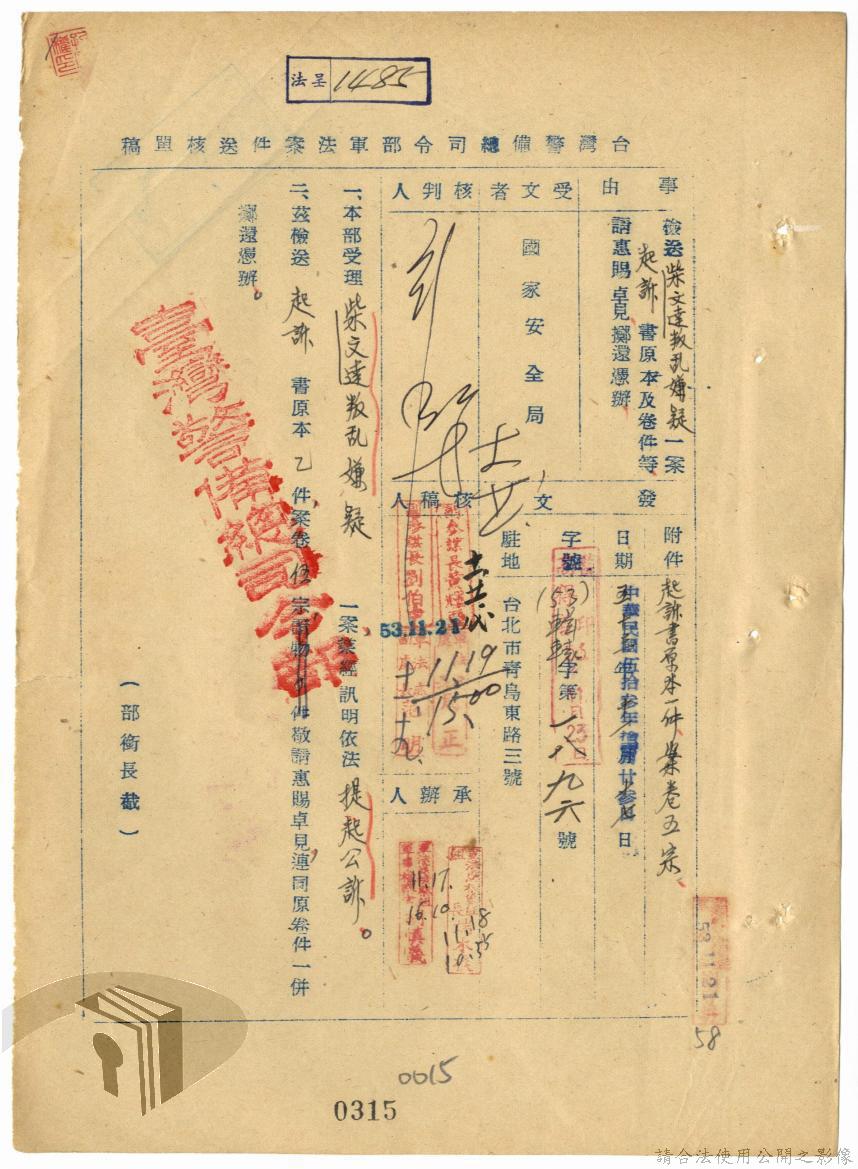 法呈 1485
台灣警備總司令部軍法案件送核單稿
事由
檢送柴文達叛乱嫌疑一案
起訴書原本及卷件等
請惠賜卓見擲還憑辦
受文者
國家安全局
核判人
發文
附件
起訴書原本一件、案卷五宗、
日期
中華民國伍拾參年
廿參日
字號
(53)
字第一八九六號
駐地
台北市青島東路三號
核稿人
53.11.21
11.19
1500
十一、十九、
承辦人
11.17.
16.10
11.18
10.55
一、本部受理柴文達叛乱嫌疑一案業經訊明依法提起公訴。
二、茲檢送起訴書原本乙件案卷伍宗
件敬請惠賜卓見連同原卷件一併
擲還憑辦。
(部銜長截)
臺灣警備總司令部
53.11.21
58
0015
0315
請合法使用公開之影像